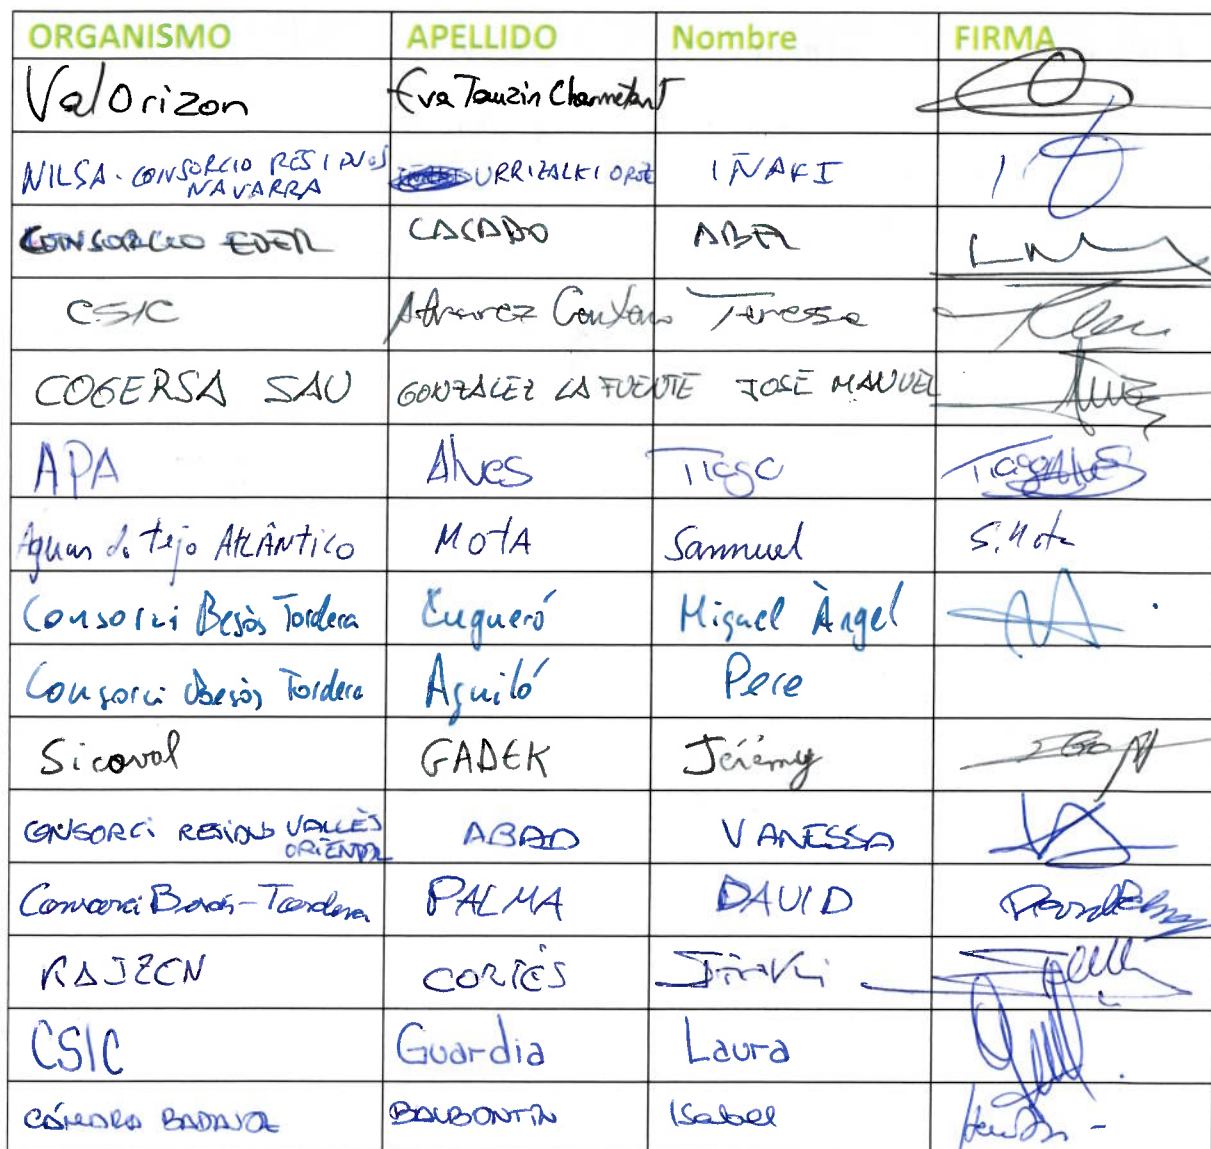 ORGANISMO APELLIDO Nombre FIRMA
ValOrizon Eva Tauzin Charmetant
NILSA - CONSORCIO RESIDUOS NAVARRA URRIZALKI OROZ IÑAKI
CONSORCIO EDER CASADO ABEL
CSIC Alvarez Centeno Teresa
COGERSA SAU GONZALEZ LA FUENTE JOSE MANUEL
APA Alves Tiago Tiago Alves
Aguas do tejo AtLÂNTICO MOTA Sammuel S. Mota
Consorci Besòs Tordera Cugueró Miquel Àngel
Consorci Besòs Tordera Aguiló Pere
Sicoval GADEK Jérémy
CONSORCI RESIDUS VALLÈS ORIENTAL ABAD VANESSA
Consorci Besòs-Tordera PALMA DAVID
CORTÉS Iñaki
CSIC Guardia Laura
CÁMARA BADAJOZ BALBONTÍN Isabel